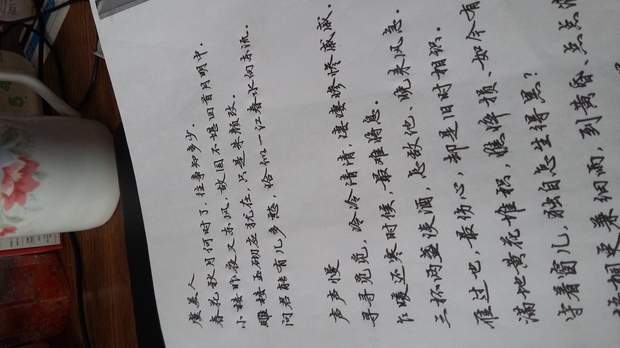 虞美人
春花秋月何时了，往事知多少．
小楼昨夜又东风，故国不堪回首月明中．
雕楼玉砌应犹在，只是朱颜改．
问君能有几多愁，恰似一江春水向东流．
声声慢
寻寻觅觅，冷冷清清，凄凄惨惨戚戚．
乍暖还寒时候，最难将息．
三杯两盏淡酒，怎敌他、晚来风急．
雁过也，最伤心，却是旧时相识．
满地黄花堆积，憔悴损、如今有
守着窗儿，独自怎生得黑？
梧桐更兼细雨，到黄昏、点点滴